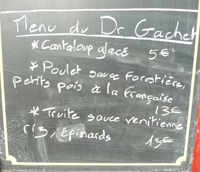 Menu du Dr Gachet
* Cantaloup glacé 5€
* Poulet sauce forestière,
petits pois à la française
13€
* Truite sauce vénitienne
riz, épinards 13€